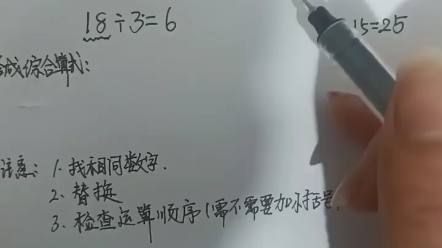 18÷3=6
15=25
成综合算式:
注意: 1. 找相同数字.
2. 替换
3. 检查运算顺序(需不需要加小括号.